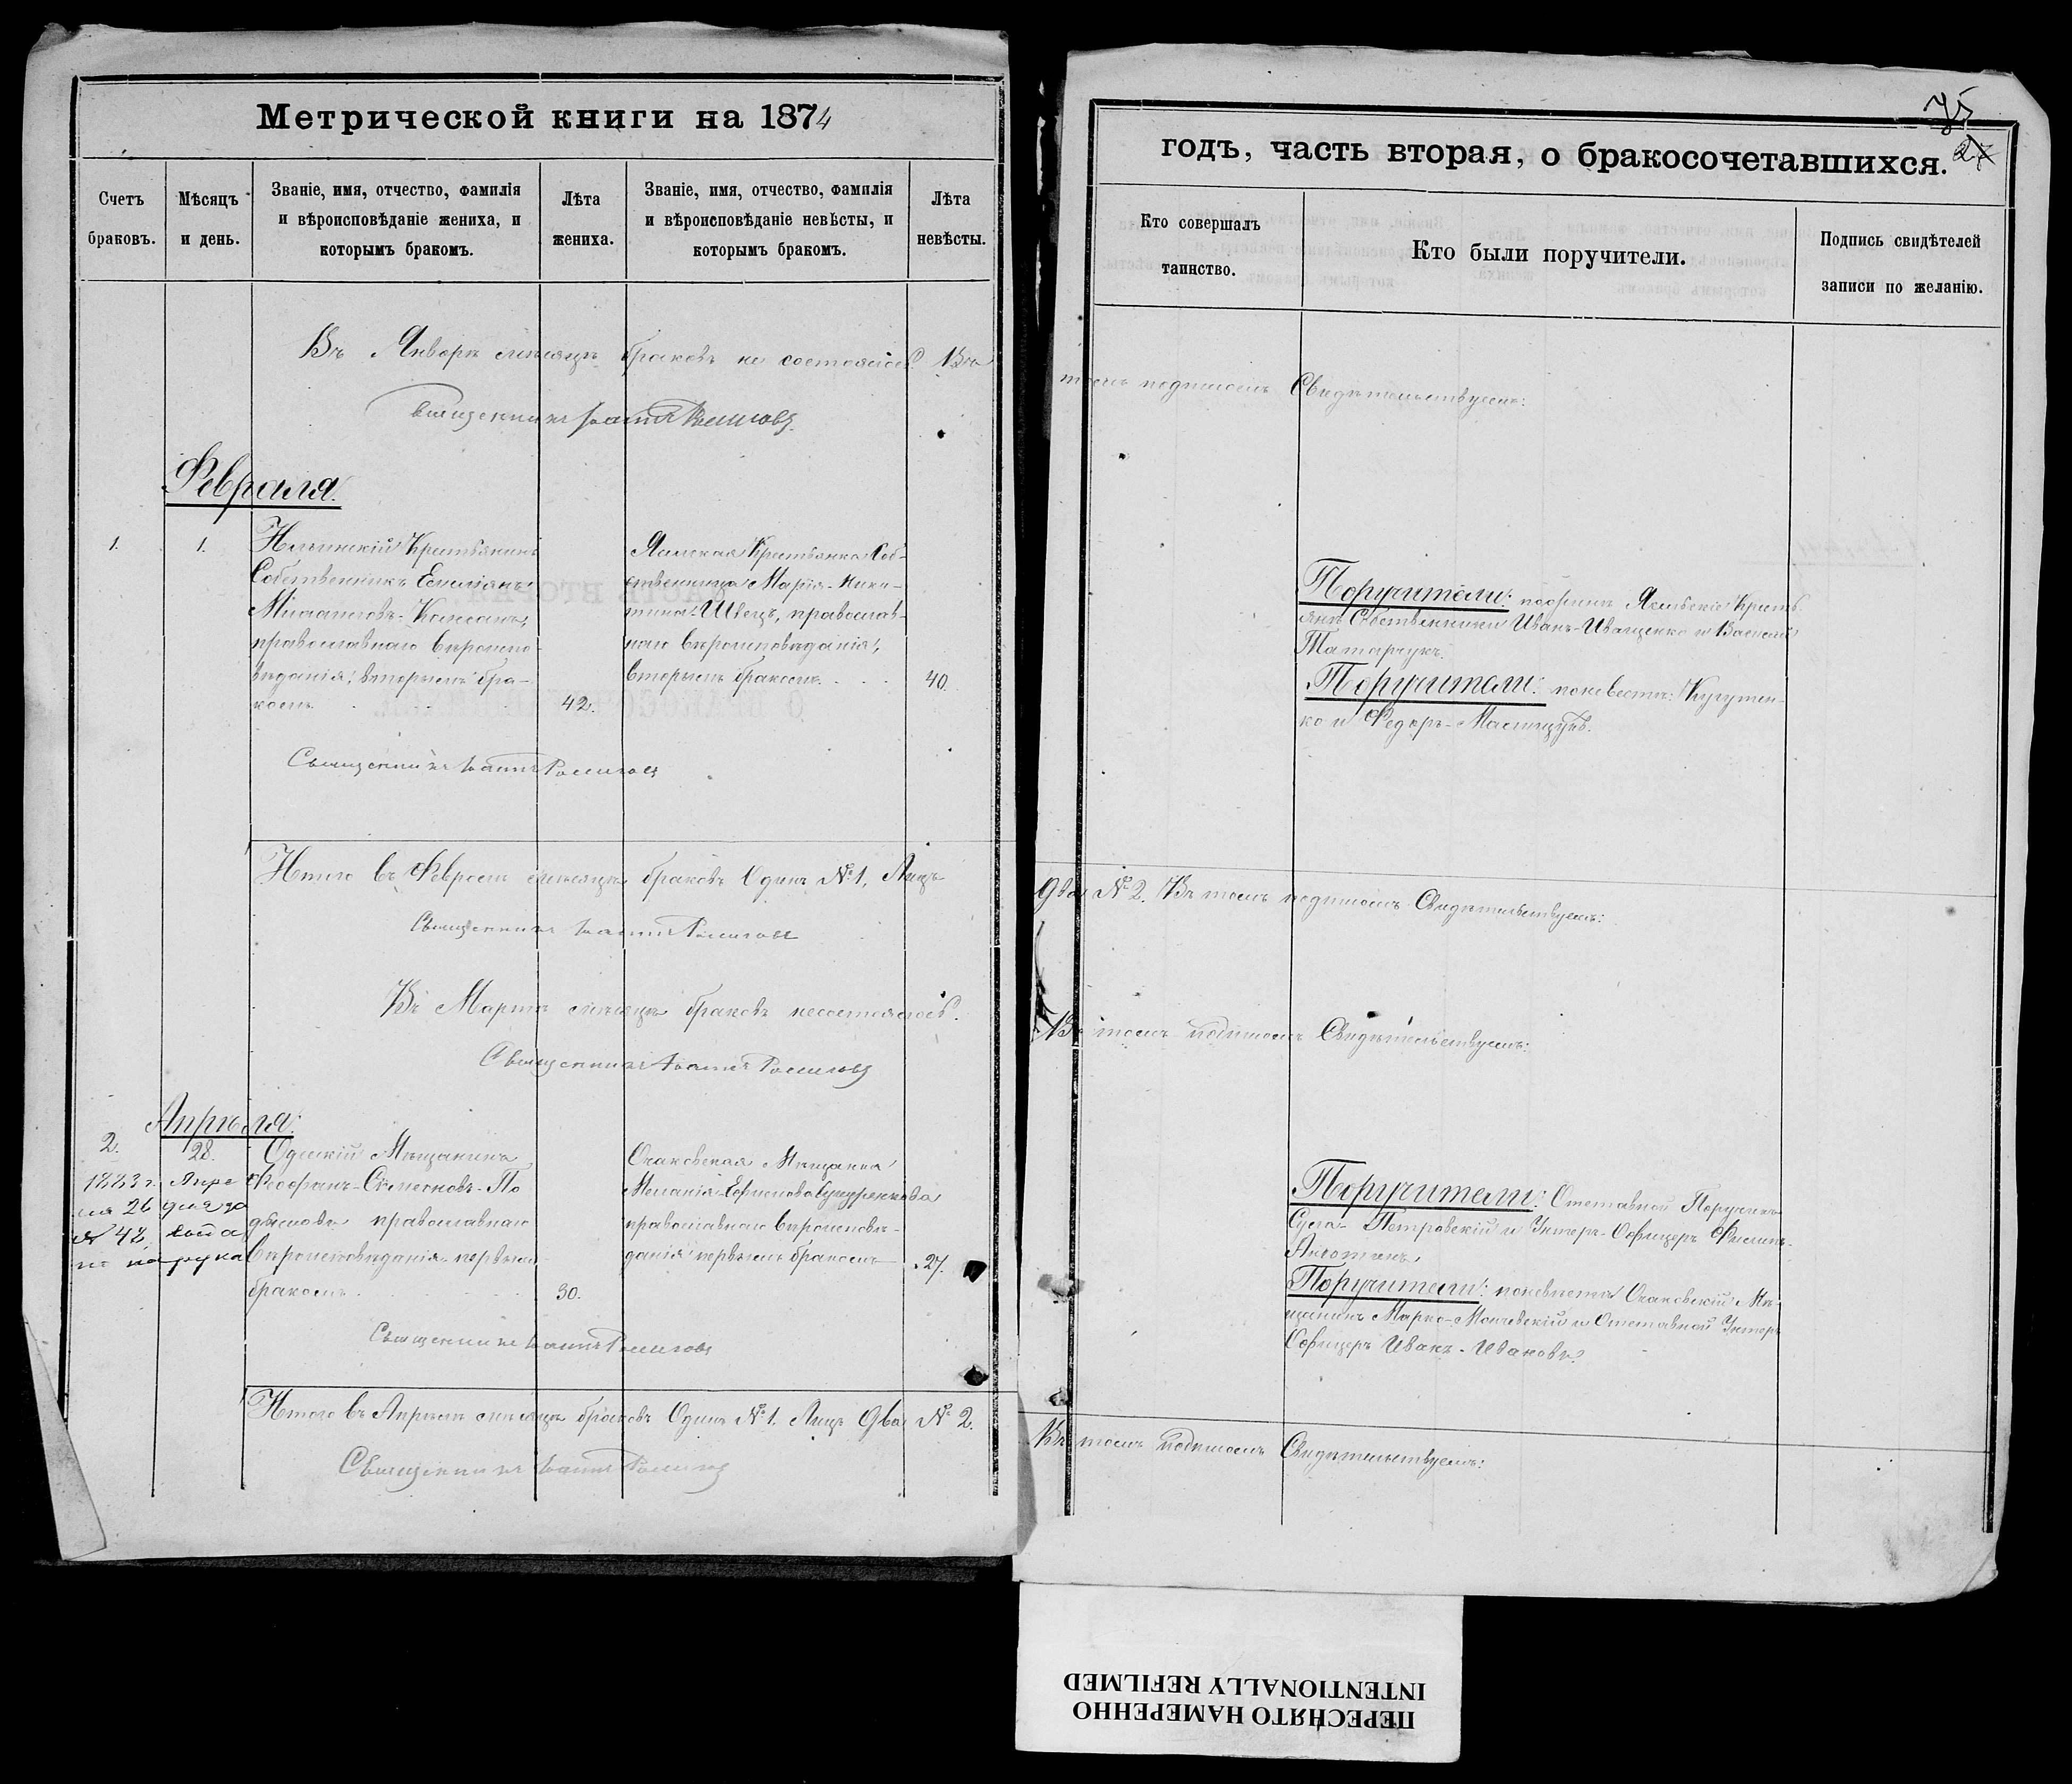 Метрической книги на 1874
Счетъ браковъ.
Мѣсяцъ и день.
Званіе, имя, отчество, фамилія и вѣроисповѣданіе жениха, и которымъ бракомъ.
Лѣта жениха.
Званіе, имя, отчество, фамилія и вѣроисповѣданіе невѣсты, и которымъ бракомъ.
Лѣта невѣсты.
Въ Январѣ мѣсяцѣ браковъ не состоялось. Въ
Священникъ Іоаннъ
Февраля.
1.
1.
Крестьянинъ
Собственникъ Емиліанъ
православнаго вѣроиспо-
вѣданія, вторымъ бра-
комъ
42.
Крестьянка Соб-
ственница Марія Ники-
тина Швецъ, православ-
наго вѣроисповѣданія,
вторымъ бракомъ
40.
Священникъ Іоаннъ
Итого въ Февралѣ мѣсяцѣ браковъ Одинъ № 1, Лицъ
Священникъ Іоаннъ
Въ Мартѣ мѣсяцѣ браковъ несостоялось.
Священникъ Іоаннъ
Апрѣля:
2.
28.
1883 г. Апре
ля 26 дня за
№ 42
на рука
Одесскій Мѣщанинъ
православнаго
вѣроисповѣданія первымъ
бракомъ
30.
Очаковская Мѣщанка
Меланія Ефимова
православнаго вѣроисповѣ-
данія первымъ бракомъ
27.
Священникъ Іоаннъ
Итого въ Апрѣлѣ мѣсяцѣ браковъ Одинъ № 1. Лицъ Два № 2.
Священникъ Іоаннъ
75
27
годъ, часть вторая, о бракосочетавшихся.
Кто совершалъ таинство.
Кто были поручители.
Подпись свидѣтелей записи по желанію.
томъ подписомъ Свидѣтельствуемъ:
Поручители: Крестьянъ
Собственники Иванъ Иващенко и Василій
Татарчукъ.
Поручители: поневестѣ:
ко и Федоръ
Два № 2. Въ томъ подписомъ Свидѣтельствуемъ:
Въ томъ подписомъ Свидѣтельствуемъ:
Поручители: Отставной Поручикъ
Петровскій и Унтеръ-Офицеръ Филипъ
Поручители: поневѣстѣ Очаковскій Мѣ-
щанинъ Марко и Отставной Унтеръ
Офицеръ Иванъ Ивановъ.
Въ томъ подписомъ Свидѣтельствуемъ:
ПЕРЕСНЯТО НАМЕРЕННО
INTENTIONALLY REFILMED